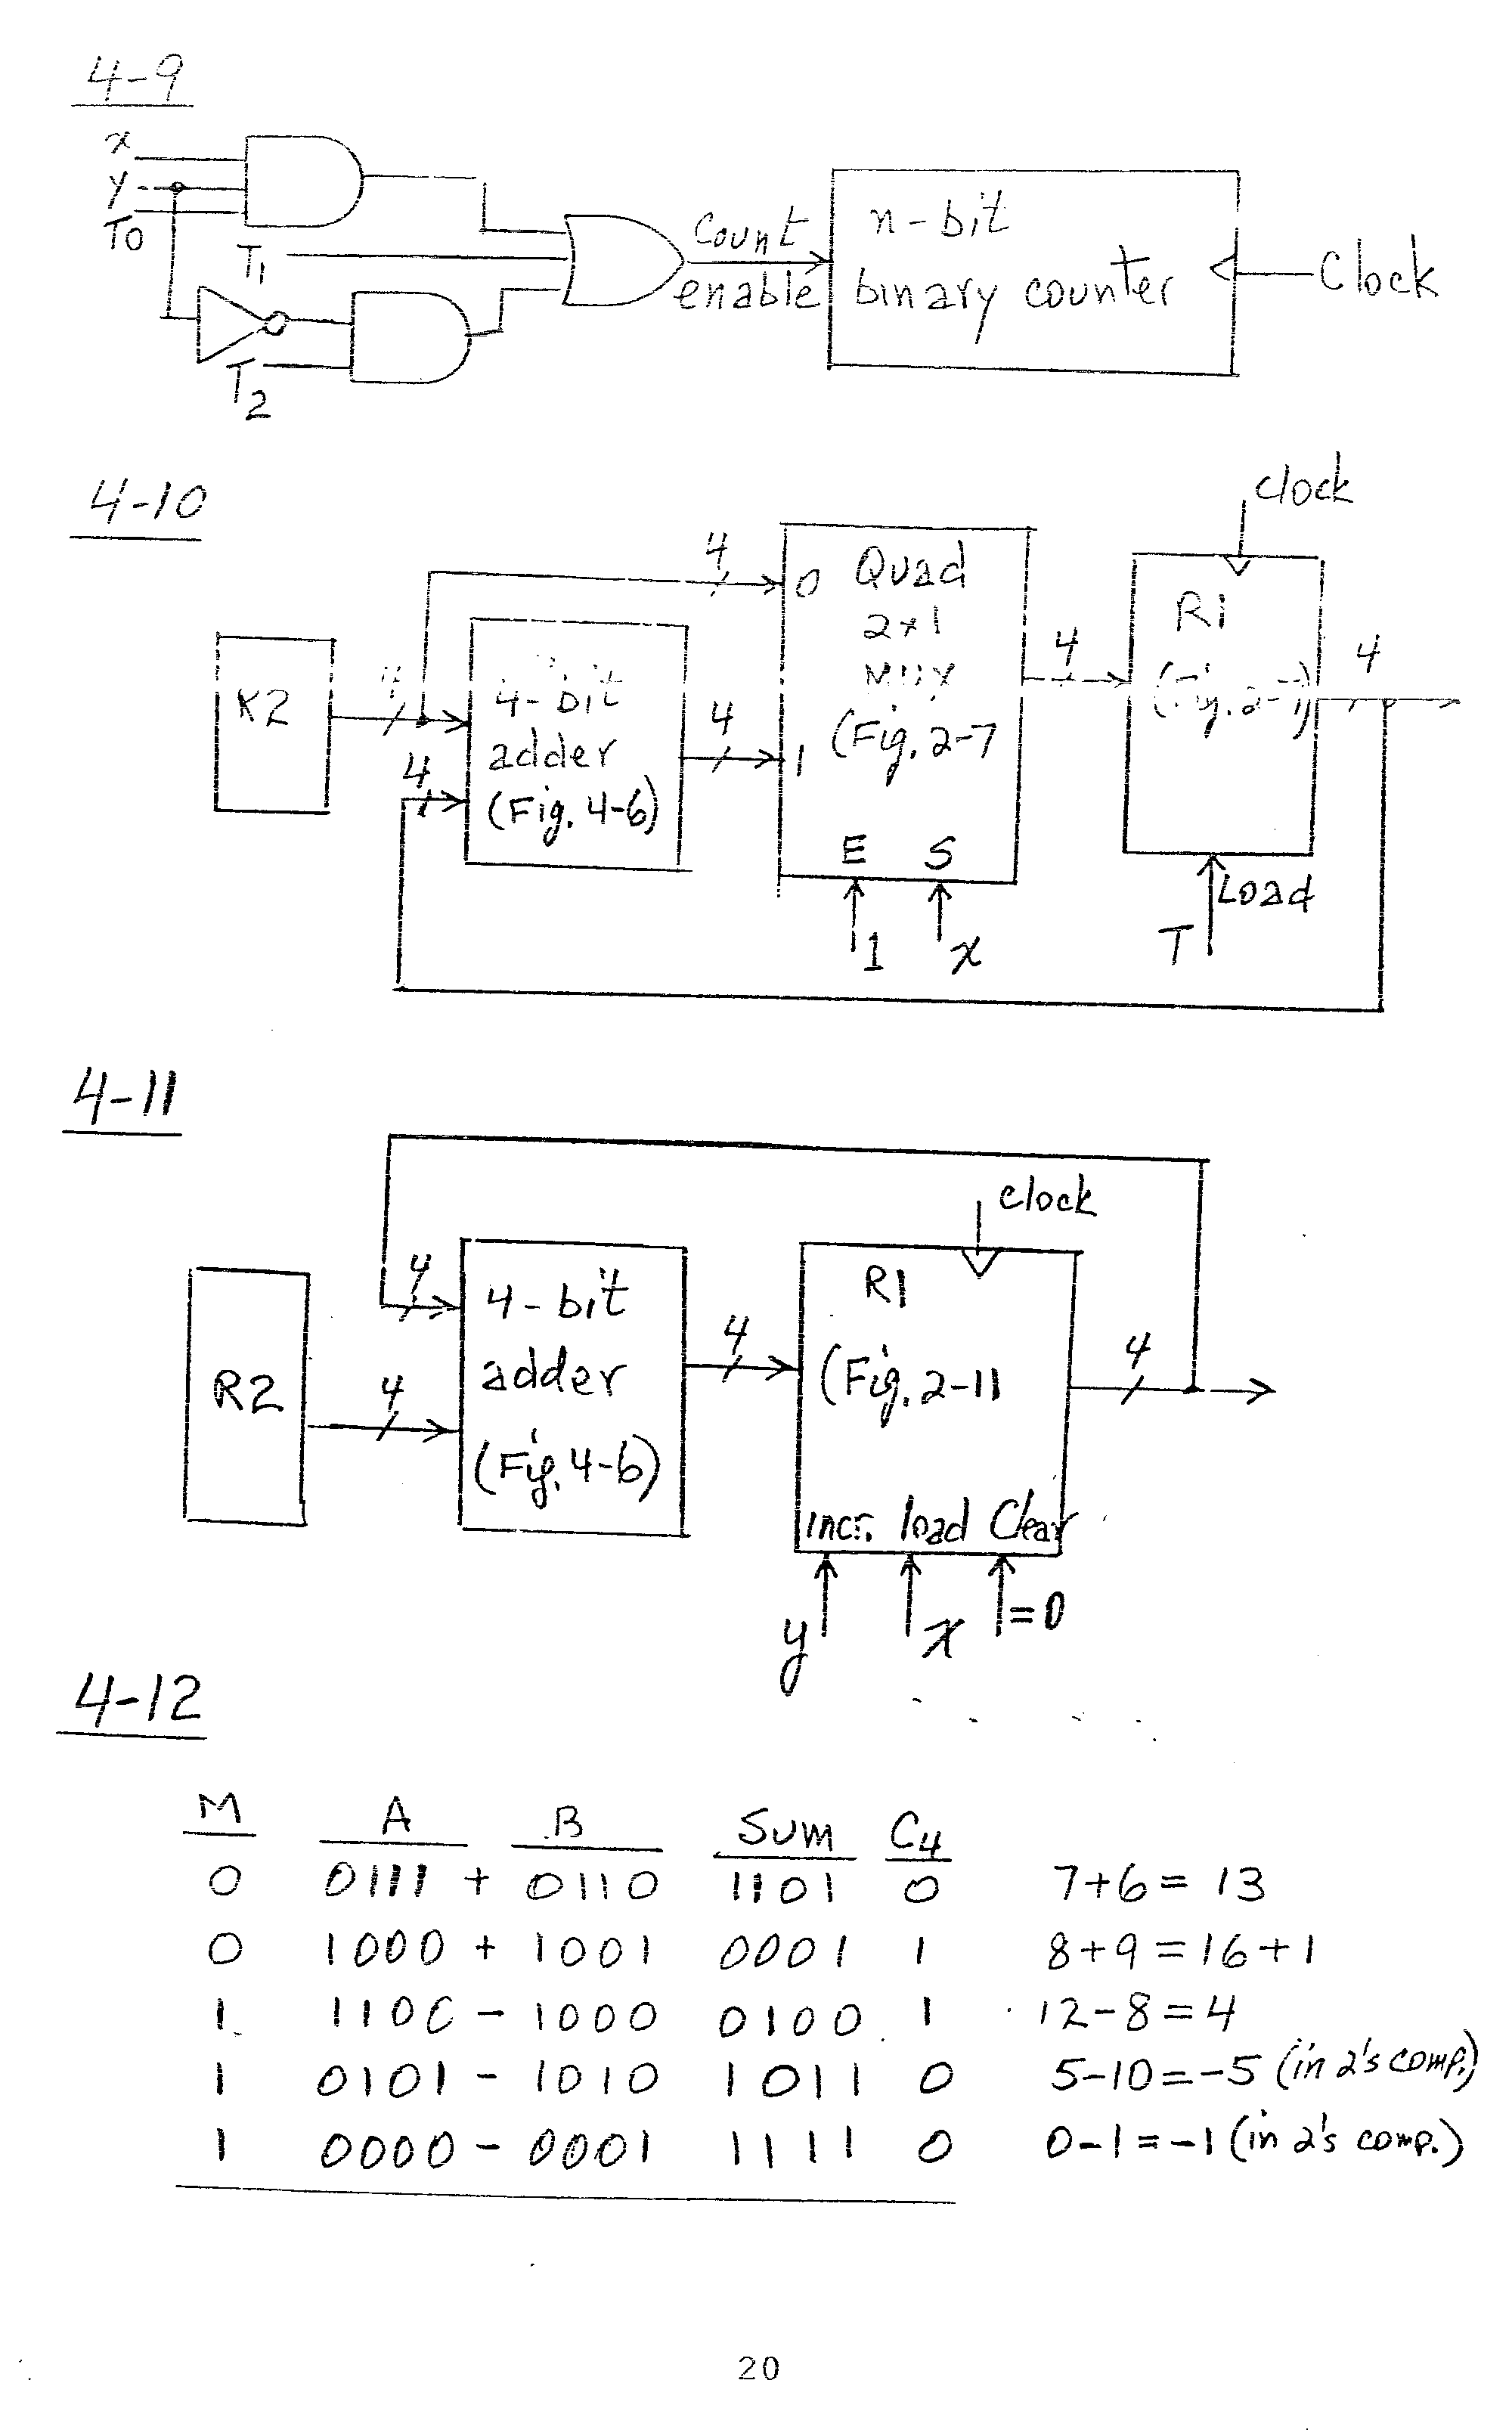 4-9
x
y
T0
T1
T2
Count
enable
n-bit
binary counter
Clock
4-10
clock
4
0 Quad
2x1
MUX
(Fig. 2-7
R1
4
4
R2
4
4-bit
adder
(Fig. 4-6)
4
4
1
E S
1 x
Load
T
4-11
clock
4
4-bit
adder
(Fig. 4-6)
R2
4
4
R1
(Fig. 2-11
4
incr. load Clear
y x =0
4-12
M A B Sum C4
0 0111 + 0110 1101 0 7+6 = 13
0 1000 + 1001 0001 1 8+9 = 16+1
1 1100 - 1000 0100 1 12-8 = 4
1 0101 - 1010 1011 0 5-10 = -5 (in 2's comp.)
1 0000 - 0001 1111 0 0-1 = -1 (in 2's comp.)
20